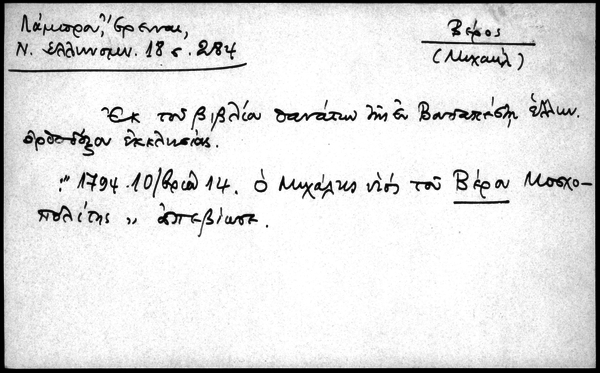 Λάμπρου, Έρευναι,
Ν. Ελληνομν. 18 σ. 284
Βέρος
(Μιχαήλ)
Εκ του βιβλίου θανάτων της εν Βουδαπέστη ελλην.
ορθοδόξου εκκλησίας.
"1794. 10/βρίου 14. ο Μιχάλης υιός του Βέρου Μοσχο-
πολίτης" απεβίωσε.